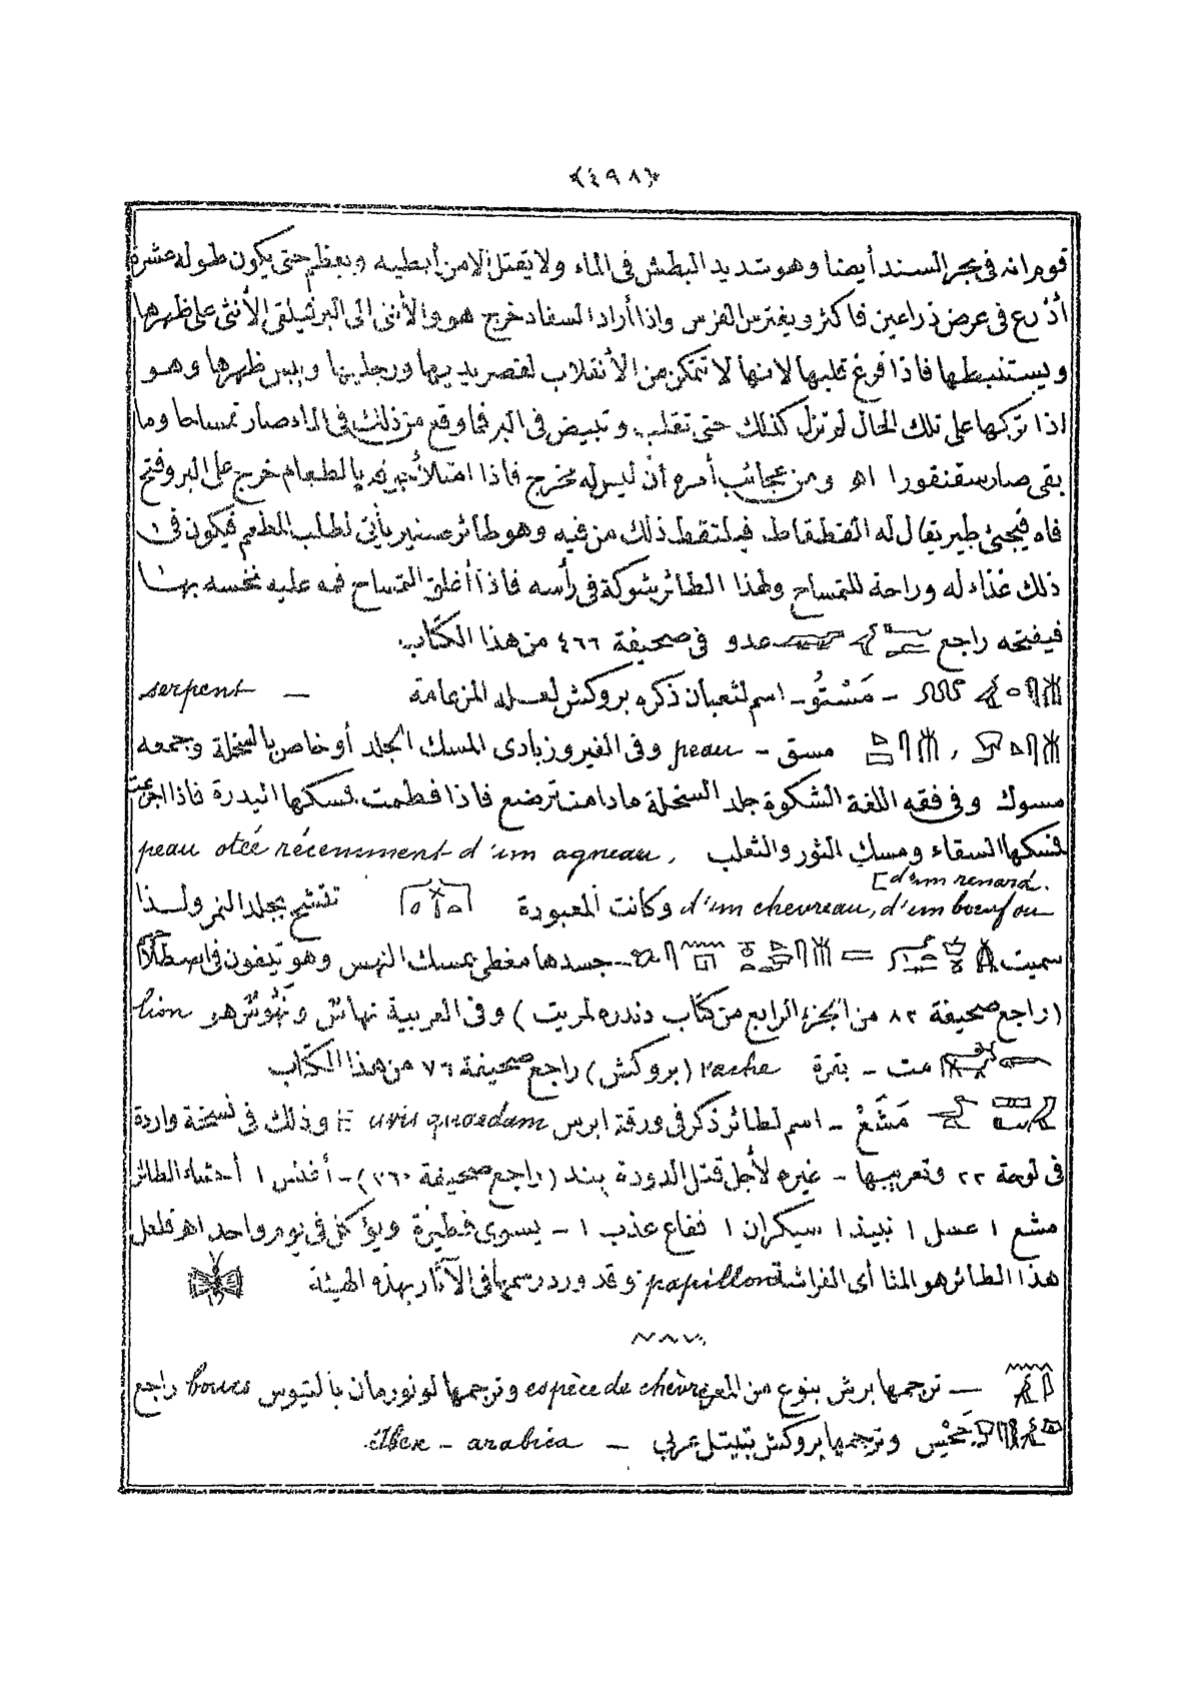 ﴿٤٩٨﴾
قوم انه فى بحر السند أيضا وهو شديد البطش فى الماء ولا يقتل الا من أبطيه ويعظم حتى يكون طوله عشرة
أذرع فى عرض ذراعين فاكثر ويفترس الفرس واذا أراد السفاد خرج هو والأنثى الى البر فيلقى الأنثى على ظهرها
ويستنبطها فاذا فرغ قلبها لانها لا تتمكن من الأنقلاب لقصر يديها ورجليها ويبس ظهرها وهو
اذا تركها على تلك الحال لم تزل كذلك حتى تقلب وتبيض فى البر فما وقع من ذلك فى الماء صار تمساحا وما
بقى صار سقنقورا اهـ ومن عجائب أمره أن ليس له مخرج فاذا امتلأ جوفه بالطعام خرج على البر وفتح
فاه فيجئ طير يقال له القطقاط فيلتقط ذلك من فيه وهو طائر صغير يأتى لطلب المطعم فيكون فى
ذلك غذاء له وراحة للتمساح ولهذا الطائر شوكة فى رأسه فاذا أغلق التمساح فمه عليه نخسه بها
فيفتحه راجع عدو فى صحيفة ٤٦٦ من هذا الكتاب
– مَسْتُو – اسم لثعبان ذكره بروكش لعله المزعامة – serpent
، مسق – peau وفى الفيروزبادى المسك الجلد أو خاص بالسخلة وجمعه
مسوك وفى فقه اللغة الشكوة جلد السخلة مادامت ترضع فاذا فطمت فمسكها البدرة فاذا اجزعت
فمسكها السقاء ومسك الثور والثعلب peau otée récemment d'un agneau,
[d'un renard.
d'un chevreau, d'un bœuf ou وكانت المعبودة تتشح بجلد النمر ولذا
سميت = – جسدها مغطى بمسك النهس وهو تيفون فى اصطلاحا
(راجع صحيفة ٨٢ من الجزء الرابع من كتاب دندره لمريت) وفى العربية نهاش ونهوش هو lion
مت – بقرة vache (بروكش) راجع صحيفة ٧٦ من هذا الكتاب
مَشَعْ – اسم لطائر ذكر فى ورقة ابرس avis quœdam وذلك فى نسخة واردة
فى لوحة ٢٢ وتعريبها – غيره لأجل قتل الدودة بند (راجع صحيفة ٢٦٠) – أفنس ١ أحشاء الطائر
مشع ١ عسل ١ نبيذ ١ سيكران ١ فقاع عذب ١ – يسوى فطيرة ويؤكل فى يوم واحد اهـ فلعل
هذا الطائر هو المثا أى الفراشة papillon وقد ورد رسمها فى الآثار بهذه الهيئة
— ترجمها برش بنوع من المعز espèce de chèvre وترجمها لونورمان بالتيوس boucs راجع
مَحْيَس وترجمها بروكش بتيتل عربى – ibex - arabica.